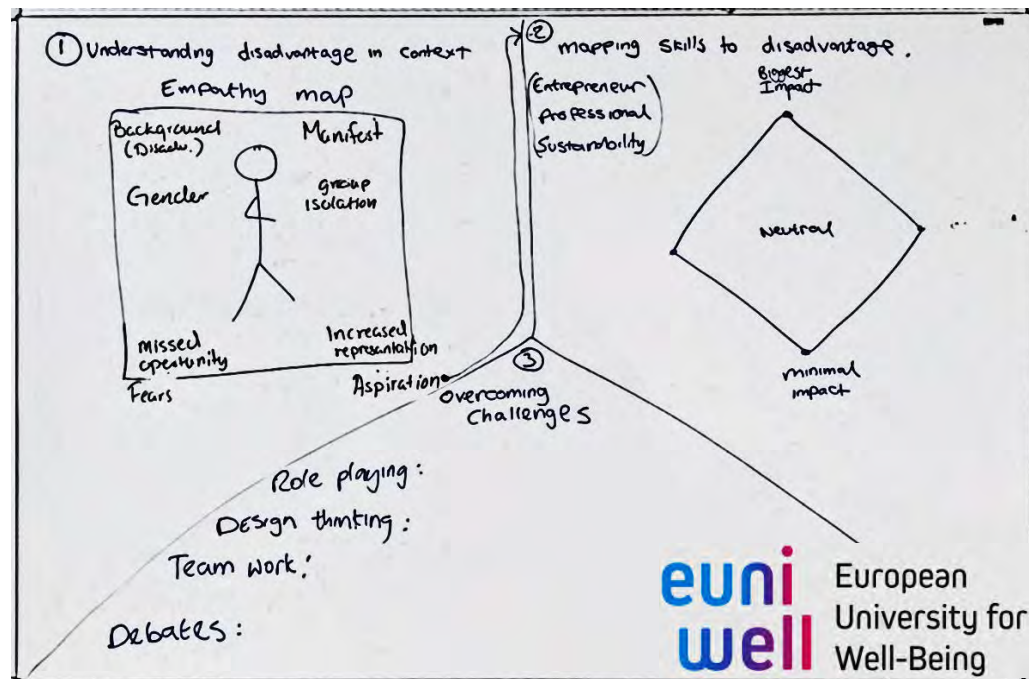 ① Understanding disadvantage in context
Empathy map
Background
(Disadv.)
Manifest
Gender
group
isolation
missed
opertunity
Increased
representation
Fears
Aspiration
② mapping skills to disadvantage.
(Entrepreneur
professional
Sustainability)
Biggest
Impact
Neutral
minimal
impact
③
Overcoming
Challenges
Role playing:
Design thinking:
Team work:
Debates:
euni
well
European
University for
Well-Being